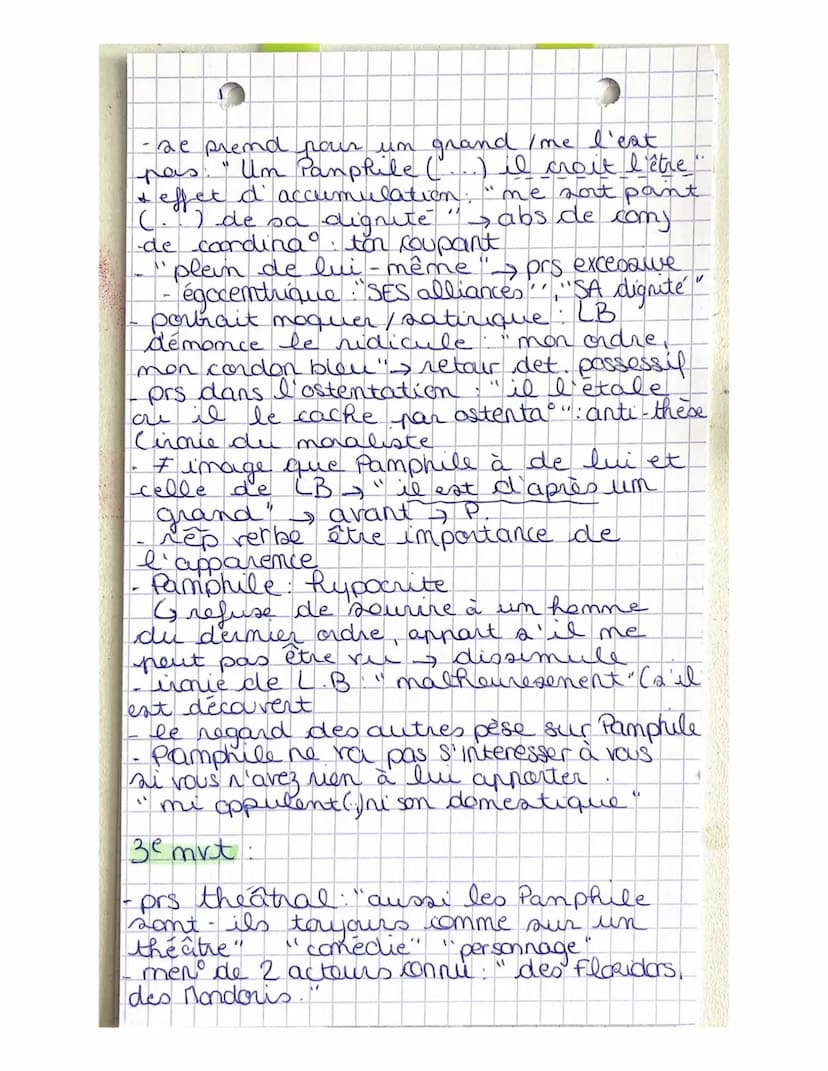 - se prend pour un grand / ne l'est
pas : "Un Pamphile (...) il croit l'être"
+ effet d'accumulation : "ne sont point
(...) de sa dignité" → abs de conj
de coordina° : ton coupant
- "plein de lui-même" → prs excessive
- égocentrique : "SES alliances", "SA dignité"
- portrait moquer / satirique : LB
démonce le ridicule : "mon ordre,
mon cordon bleu" → retour det. possessif
- prs dans l'ostentation : "il l'étale
ou il le cache par ostenta°" : anti-thèse
(ironie du moraliste
- ≠ image que Pamphile à de lui et
celle de LB → "il est d'après un
grand" → avant → P.
- rép verbe être importance de
l'apparence
- Pamphile : hypocrite
↳ refuse de sourire à un homme
du dernier ordre, appart s'il ne
peut pas être vu → dissimule
- ironie de L.B : "malheuresement" (s'il
est découvert
- le regard des autres pèse sur Pamphile
- Pamphile ne va pas s'intéresser à vous
si vous n'avez rien à lui apporter.
"ni oppulent (.) ni son domestique"
3e mvt :
- prs théâtral : "aussi les Pamphile
sont-ils toujours comme sur un
théâtre" "comédie" "personnage"
- men° de 2 acteurs connu : "des Floridors,
des Mondoris."